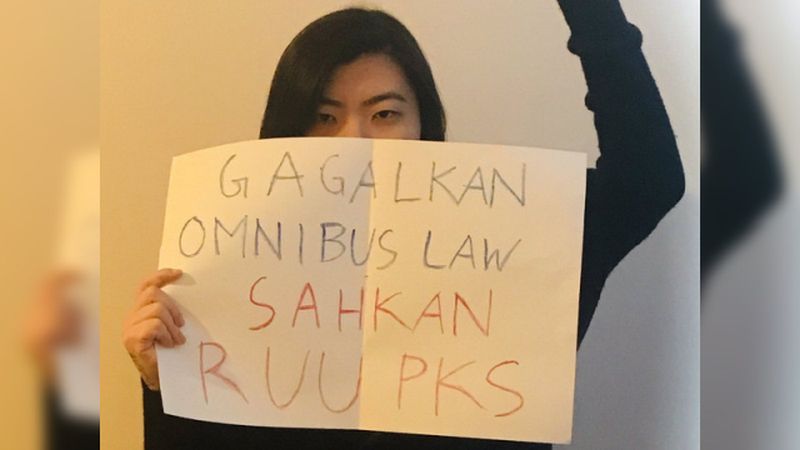 GAGALKAN
OMNIBUS LAW
SAHKAN
RUU PKS